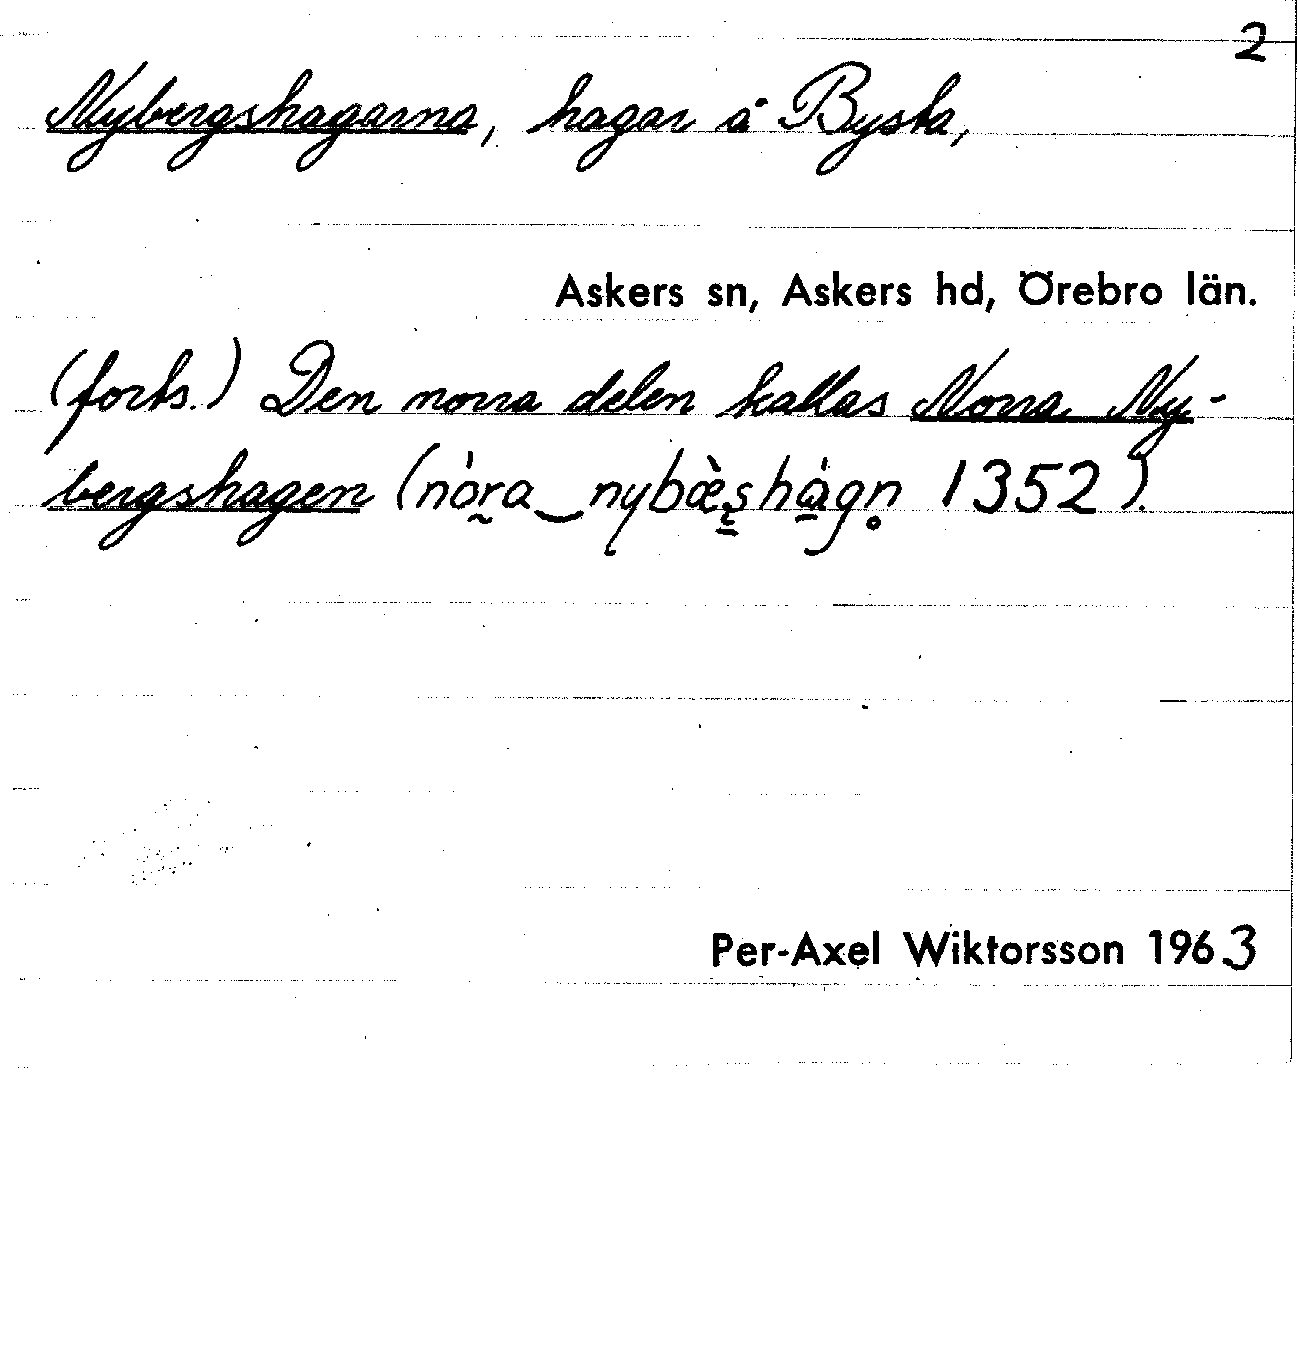 2
Nybergshagarna, hagar å Bysta,
Askers sn, Askers hd, Örebro län.
(forts.) Den norra delen kallas Norra Ny-
bergshagen (nòra‿nybæ̀ʂhàgn̥ 1352).
Per-Axel Wiktorsson 1963